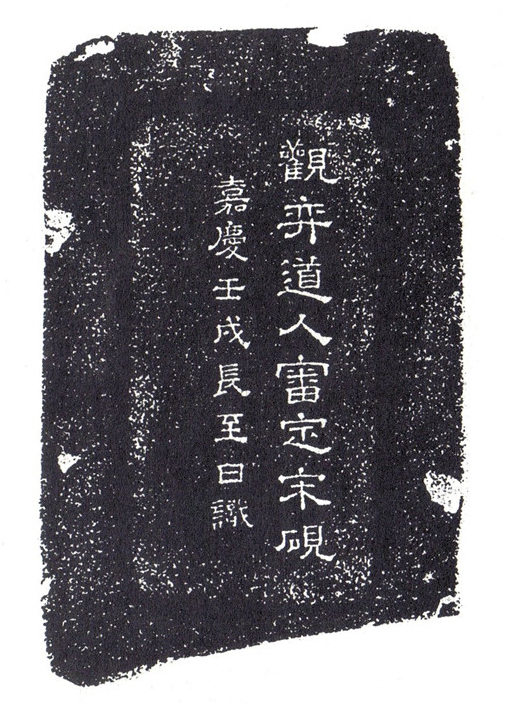 觀弈道人審定宋硯
嘉慶壬戌長至日識